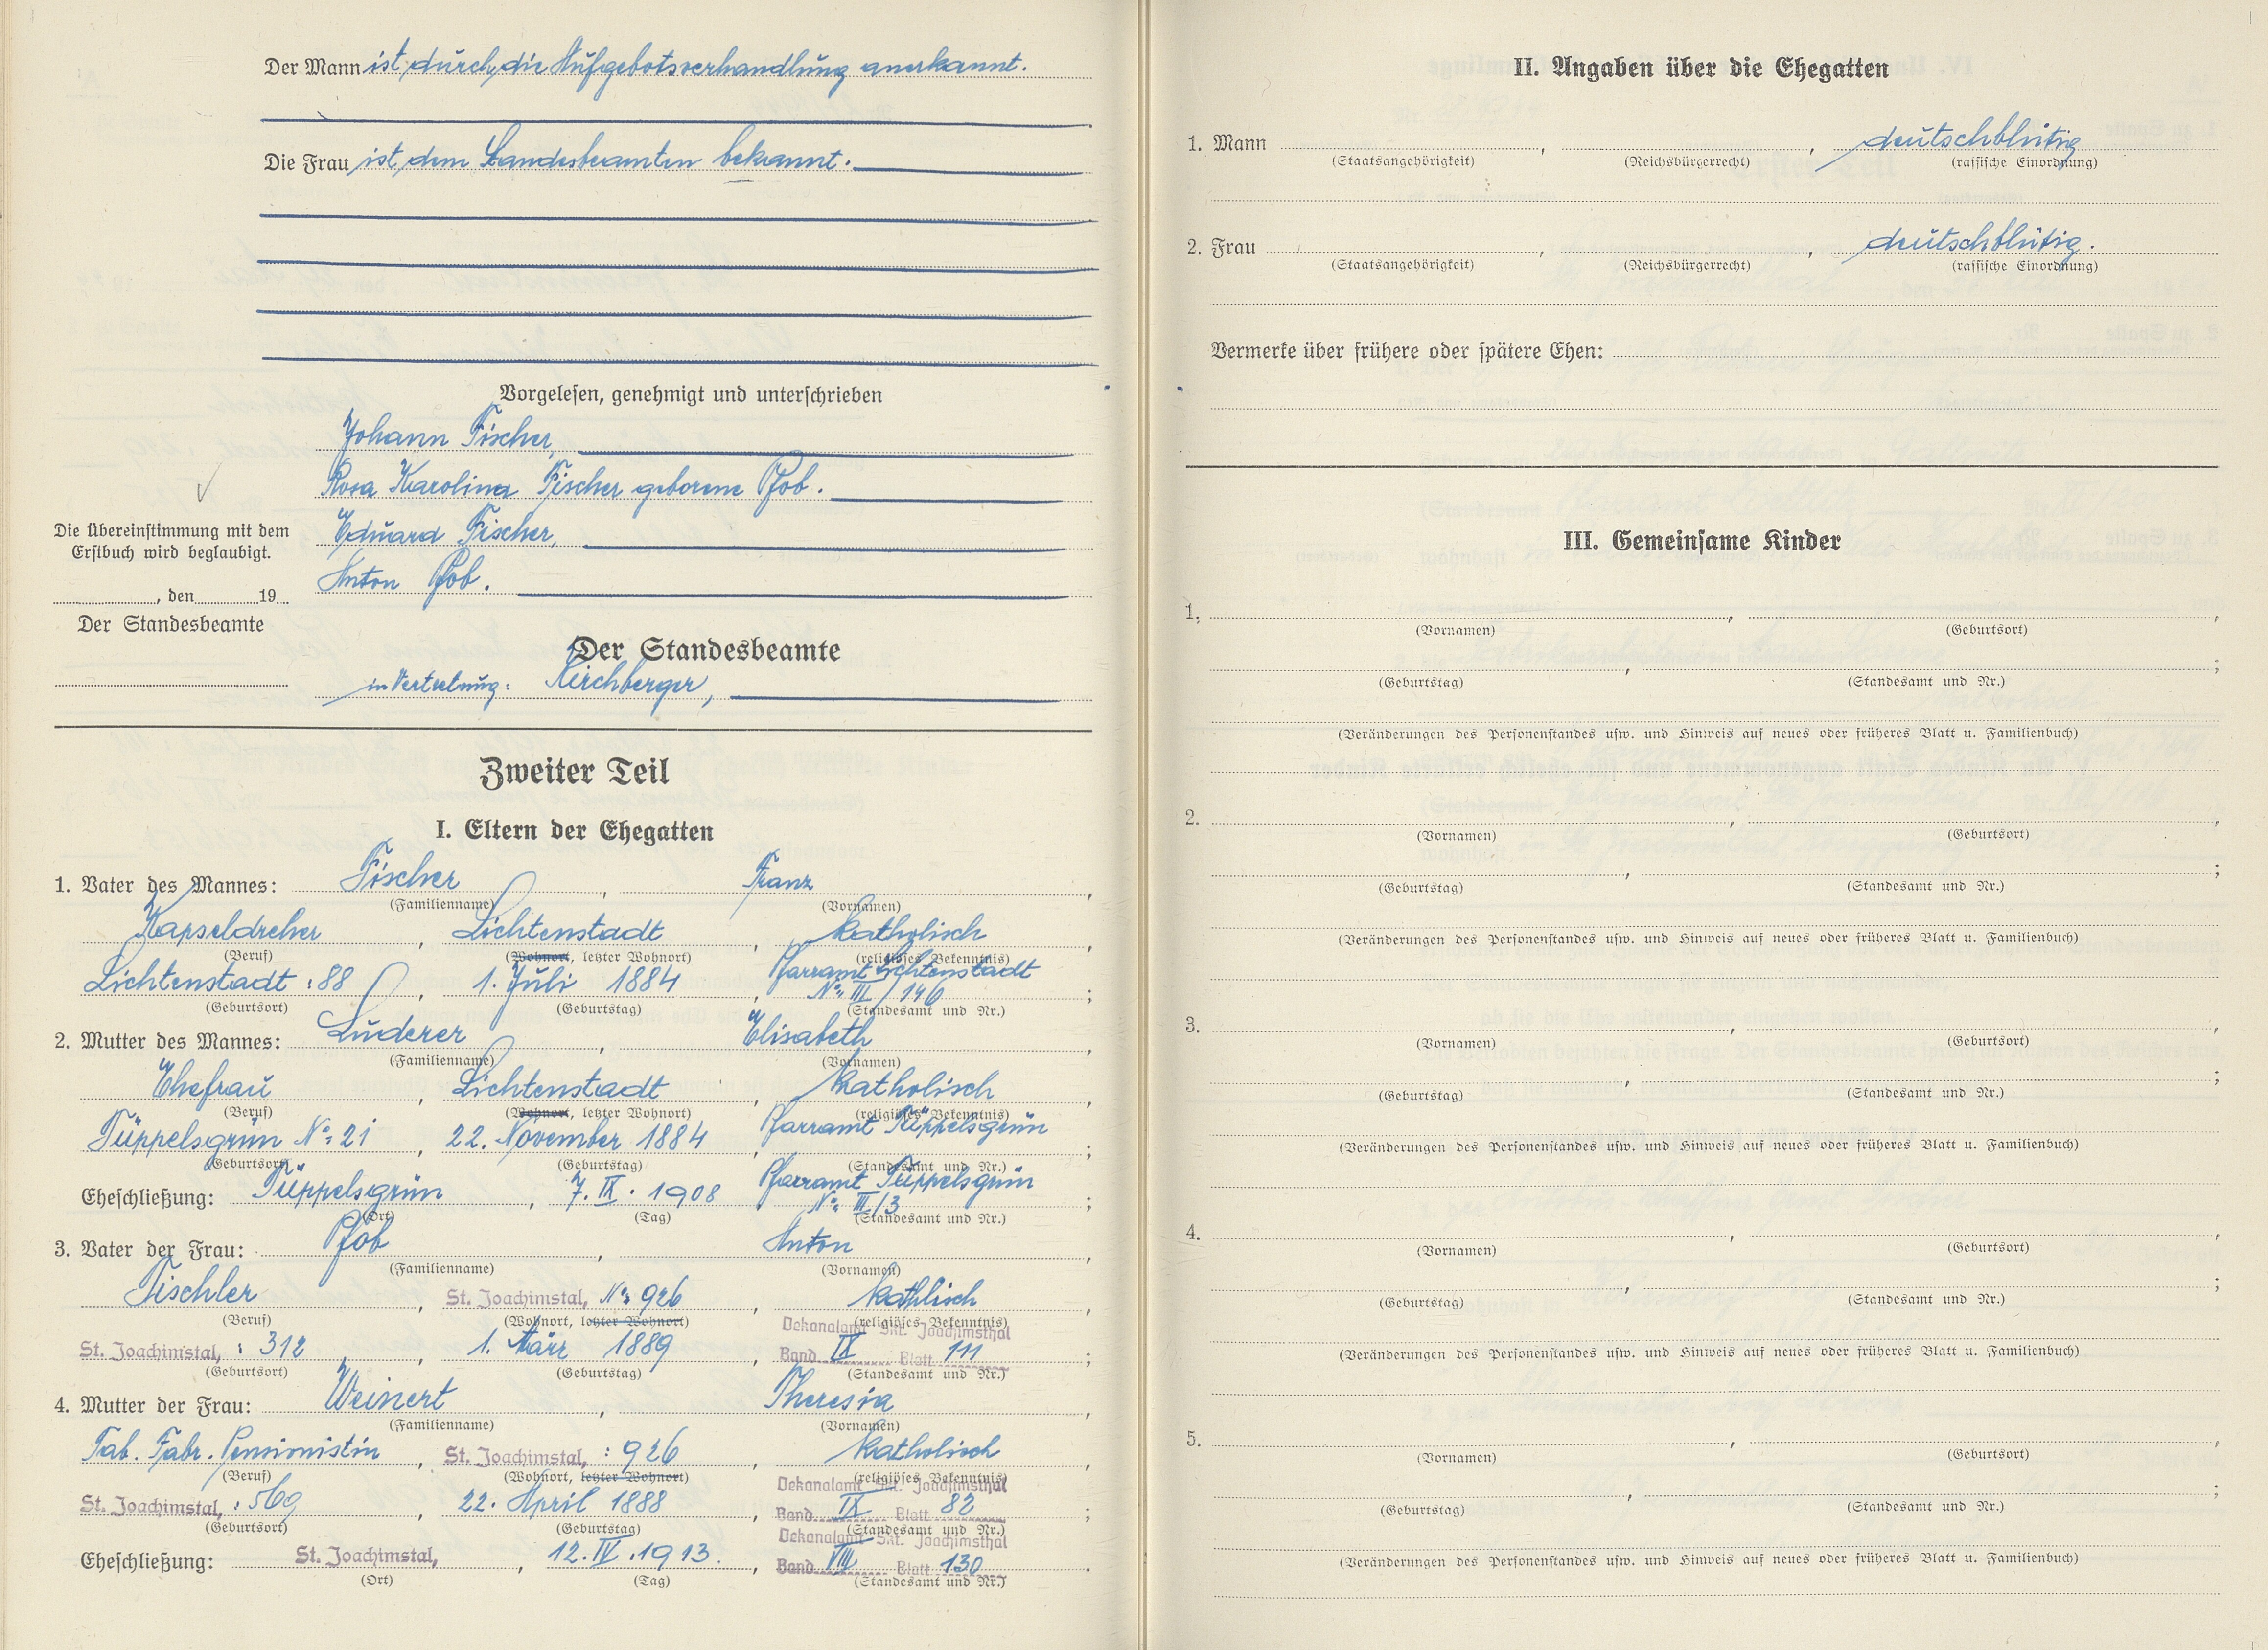 Der Mann ist durch die Aufgebotsverhandlung anerkannt.
Die Frau ist dem Standesbeamten bekannt.
Vorgelesen, genehmigt und unterschrieben
Johann Fischer,
Rosa Karolina Fischer geborene Pfob.
Eduard Fischer,
Anton Pfob.
Die Übereinstimmung mit dem
Erstbuch wird beglaubigt.
, den 19
Der Standesbeamte
Der Standesbeamte
in Vertretung: Kirchberger,
Zweiter Teil
I. Eltern der Ehegatten
1. Vater des Mannes: Fischer, Franz,
(Familienname) (Vornamen)
Kapseldreher, Lichtenstadt, katholisch,
(Beruf) (Wohnort, letzter Wohnort) (religiöses Bekenntnis)
Lichtenstadt : 88, 1. Juli 1884, Pfarramt Lichtenstadt
No: III / 146;
(Geburtsort) (Geburtstag) (Standesamt und Nr.)
2. Mutter des Mannes: Luderer, Elisabeth,
(Familienname) (Vornamen)
Ehefrau, Lichtenstadt, katholisch,
(Beruf) (Wohnort, letzter Wohnort) (religiöses Bekenntnis)
Tüppelsgrün No: 21, 22. November 1884, Pfarramt Tüppelsgrün;
(Geburtsort) (Geburtstag) (Standesamt und Nr.)
Eheschließung: Tüppelsgrün, 7. IX. 1908, Pfarramt Tüppelsgrün
No: III/3;
(Ort) (Tag) (Standesamt und Nr.)
3. Vater der Frau: Pfob, Anton,
(Familienname) (Vornamen)
Tischler, St. Joachimstal, No: 926, kathlisch,
(Beruf) (Wohnort, letzter Wohnort) (religiöses Bekenntnis)
St. Joachimstal, : 312, 1. März 1889, Dekanalamt Skt. Joachimsthal
Band IX Blatt 111;
(Geburtsort) (Geburtstag) (Standesamt und Nr.)
4. Mutter der Frau: Weinert, Theresia,
(Familienname) (Vornamen)
Tab. Fabr. Pensionistin, St. Joachimstal, : 926, katholisch,
(Beruf) (Wohnort, letzter Wohnort) (religiöses Bekenntnis)
St. Joachimstal, : 569, 22. April 1888, Dekanalamt Skt. Joachimsthal
Band IX Blatt 82;
(Geburtsort) (Geburtstag) (Standesamt und Nr.)
Eheschließung: St. Joachimstal, , 12. IV. 1913., Dekanalamt Skt. Joachimsthal
Band VIII Blatt 130.
(Ort) (Tag) (Standesamt und Nr.)
II. Angaben über die Ehegatten
1. Mann , , deutschblütig
(Staatsangehörigkeit) (Reichsbürgerrecht) (rassische Einordnung)
2. Frau , , deutschblütig.
(Staatsangehörigkeit) (Reichsbürgerrecht) (rassische Einordnung)
Vermerke über frühere oder spätere Ehen:
III. Gemeinsame Kinder
1. , ,
(Vornamen) (Geburtsort)
, ;
(Geburtstag) (Standesamt und Nr.)
(Veränderungen des Personenstandes usw. und Hinweis auf neues oder früheres Blatt u. Familienbuch)
2. , ,
(Vornamen) (Geburtsort)
, ;
(Geburtstag) (Standesamt und Nr.)
(Veränderungen des Personenstandes usw. und Hinweis auf neues oder früheres Blatt u. Familienbuch)
3. , ,
(Vornamen) (Geburtsort)
, ;
(Geburtstag) (Standesamt und Nr.)
(Veränderungen des Personenstandes usw. und Hinweis auf neues oder früheres Blatt u. Familienbuch)
4. , ,
(Vornamen) (Geburtsort)
, ;
(Geburtstag) (Standesamt und Nr.)
(Veränderungen des Personenstandes usw. und Hinweis auf neues oder früheres Blatt u. Familienbuch)
5. , ,
(Vornamen) (Geburtsort)
, ;
(Geburtstag) (Standesamt und Nr.)
(Veränderungen des Personenstandes usw. und Hinweis auf neues oder früheres Blatt u. Familienbuch)